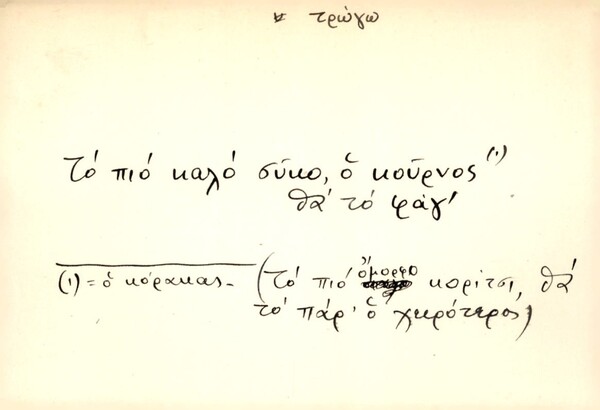 τρώγω
Τό πιό καλό σύκο, ὁ κοῦρνος (1)
θά τό φάγ'
(1) = ὁ κόρακας - (Τό πιό ὄμορφο κορίτσι, θά
τό πάρ' ὁ χειρότερος)